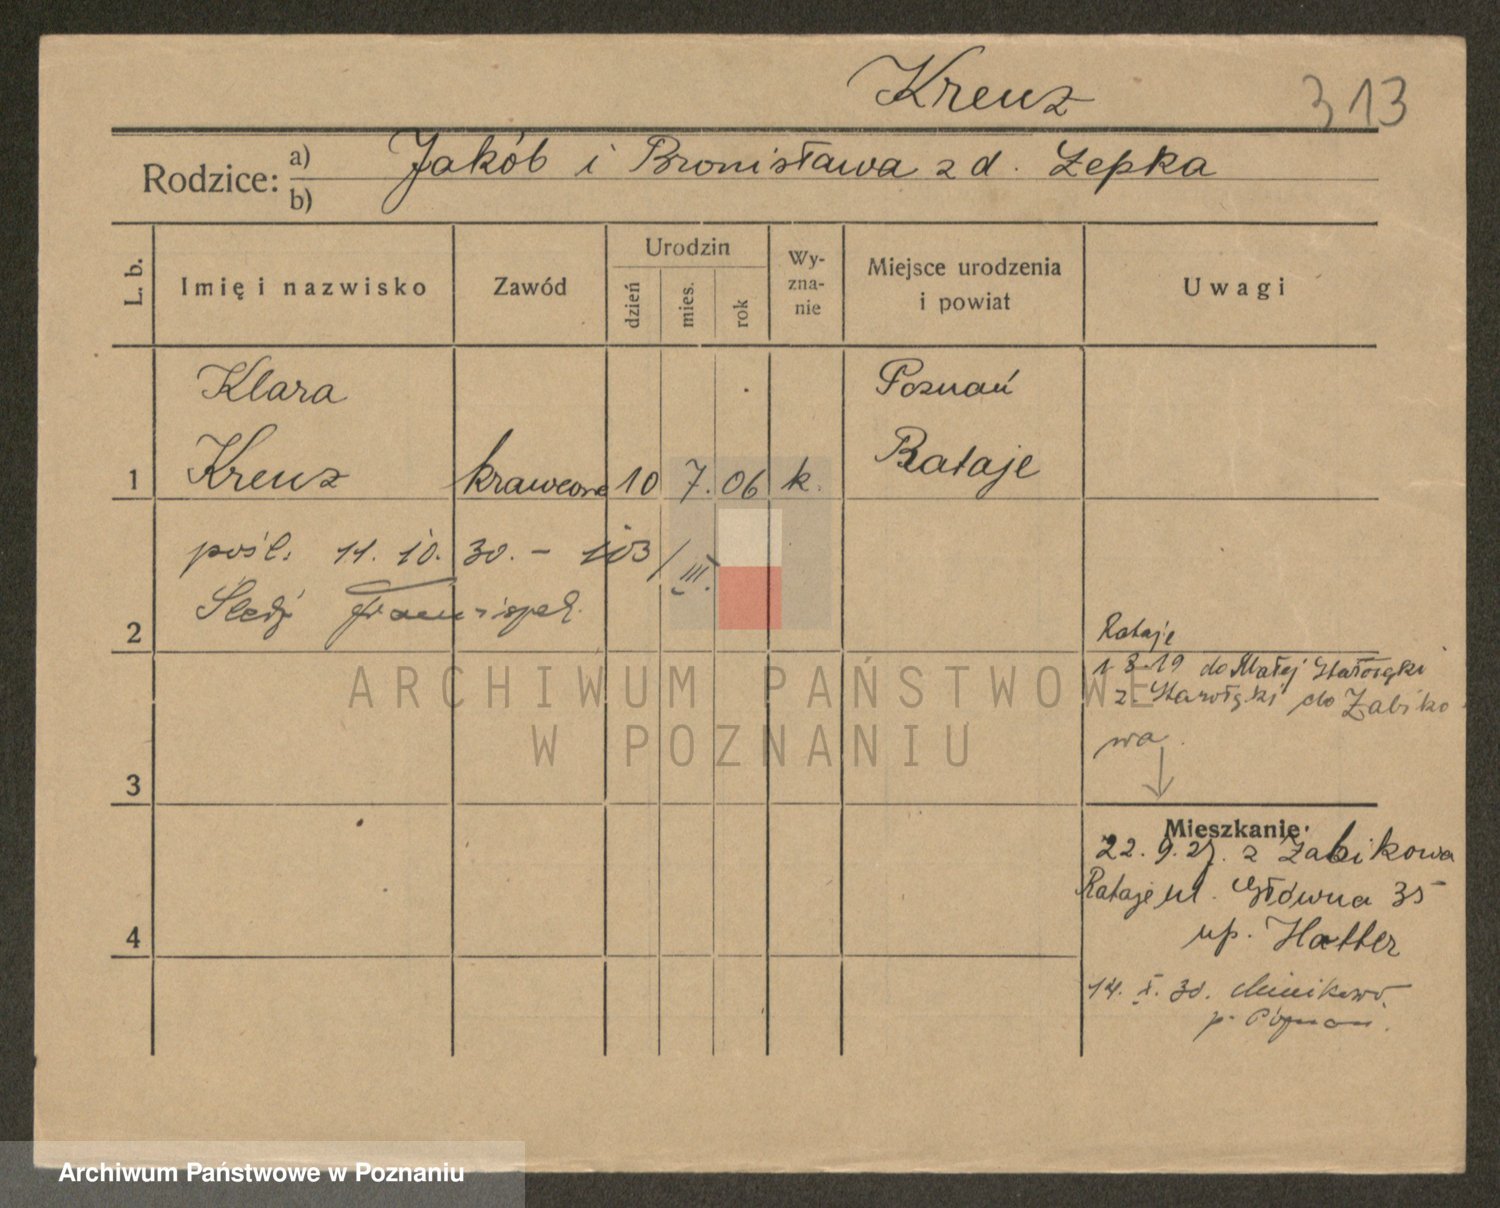 Kreuz 313
Rodzice: a) Jakób i Bronisława z d. Łepka
b)
L. b. Imię i nazwisko Zawód Urodzin dzień mies. rok Wy-zna-nie Miejsce urodzenia i powiat Uwagi
Klara Poznań
1 Kreuz krawcowa 10 7. 06 k. Rataje
pośl. 11. 10. 30. - 103/III.
2 Śledź Franciszek.
Rataje
1.8.19 do Małej Starołęki
z Starołęki do Żabiko
wa.
3
Mieszkanie:
22. 9. 27. z Żabikowa
Rataje ul. Główna 35
up. Hatter
4
14. X. 30. Minikowo
p. Poznań.
ARCHIWUM PAŃSTWOWE
W POZNANIU
Archiwum Państwowe w Poznaniu